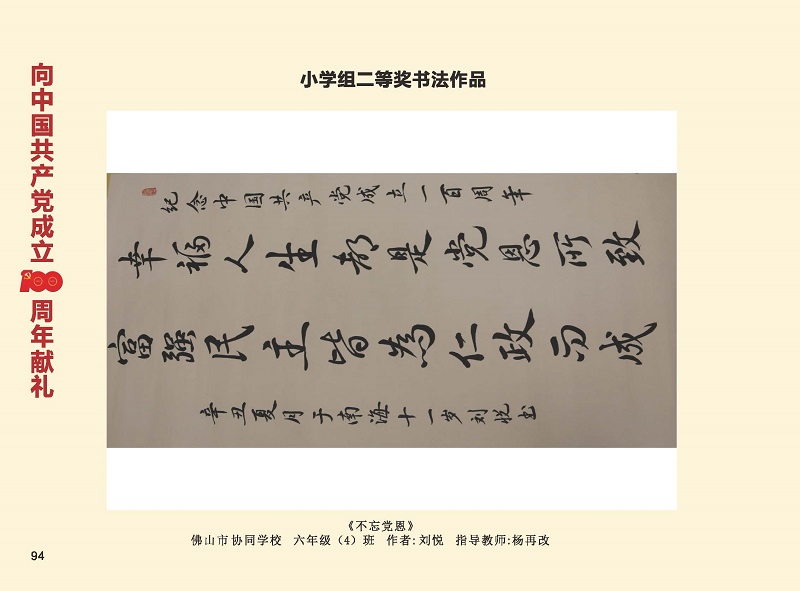 小学组二等奖书法作品
向中国共产党成立100周年献礼
纪念中国共产党成立一百周年
幸福人生都是党恩所致
富强民主皆为仁政而成
辛丑夏月于南海十一岁刘悦书
《不忘党恩》
佛山市协同学校 六年级（4）班 作者:刘悦 指导教师:杨再改
94